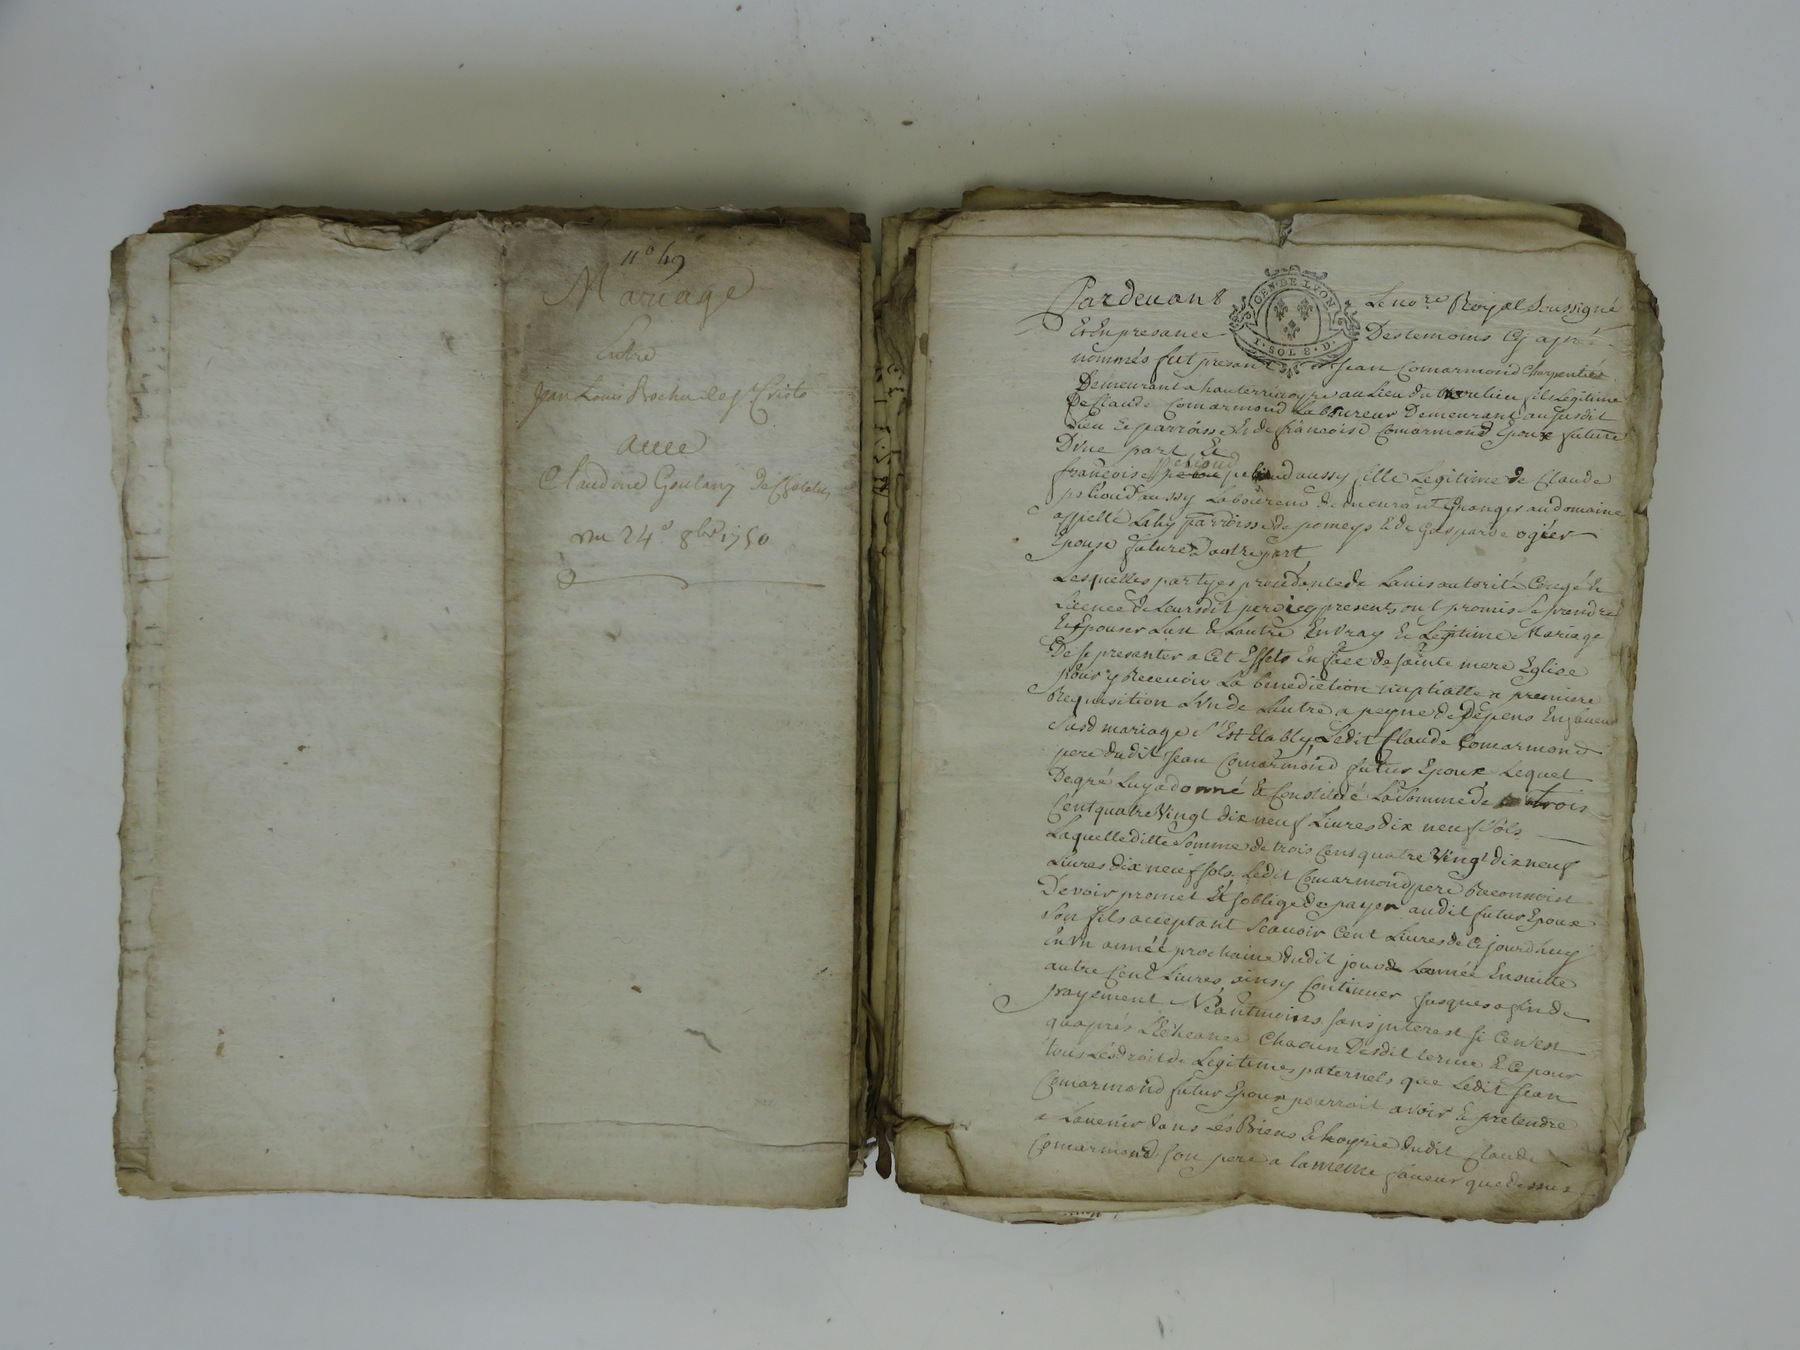 n° 49
Mariage
Entre
Jean Louis
avec
Claudine
du 24e 8bre 1750
Pardevant Le nore Royal Soussigné
GEN. DE LYON
1. SOL 8. D.
Et En presance Des temoins Cy apres
nommés fut present Jean Comarmond Charpentier
Demeurant a hauterivoyre au Lieu du fils Legitime
De Claude Comarmond Laboureur Demeurant au susdit
Lieu et parroisse & de francoise Comarmond Epoux futur
Dune part Et
francoise aussy fille Legitime de Claude
aussy Laboureur demeurant Granger au domaine
appellé parroisse de pomeys & de Gasparde ogier
Epouse future Dautre part
Lesquelles partyes procedante de Lavis autorité Congé &
Licence de Leursdit peres icy presents ont promis se prendre
& Epouser Lun & Lautre En vray & Legitime Mariage
De se presenter a Cet Effets En face de sainte mere Eglise
pour y Recevoir La benediction nuptialle a premiere
Requisition Lun de Lautre a peyne de Depens En faveur
dud mariage s'Est Etably Ledit Claude Comarmond
pere dudit Jean Comarmond futur Epoux Lequel
De gré Luy a donné & Constitué La somme de trois
Cent quatre Vingt dix neuf Livres dix neuf sols
Laquelle ditte somme de trois Cent quatre Vingt dix neuf
Livres dix neuf sols Ledit Comarmond pere Reconnoist
Devoir promet Et soblige de payer audit futur Epoux
son fils acceptant Scavoir Cent Livres de Cejourdhuy
En un année prochaine dudit jour & Lannée Ensuitte
autre Cent Livres ainsy Continuer jusques a fin de
payement Neantmoins sans interest si Cen'est
quaprés L'Echeance Chacun Desdit terme & Ce pour
tous Les droit de Legitimes paternels que Ledit Jean
Comarmond futur Epoux pourroit avoir & pretendre
a Lavenir dans Les Biens & hoyrie dudit Claude
Comarmond son pere a la meme faveur que dessus